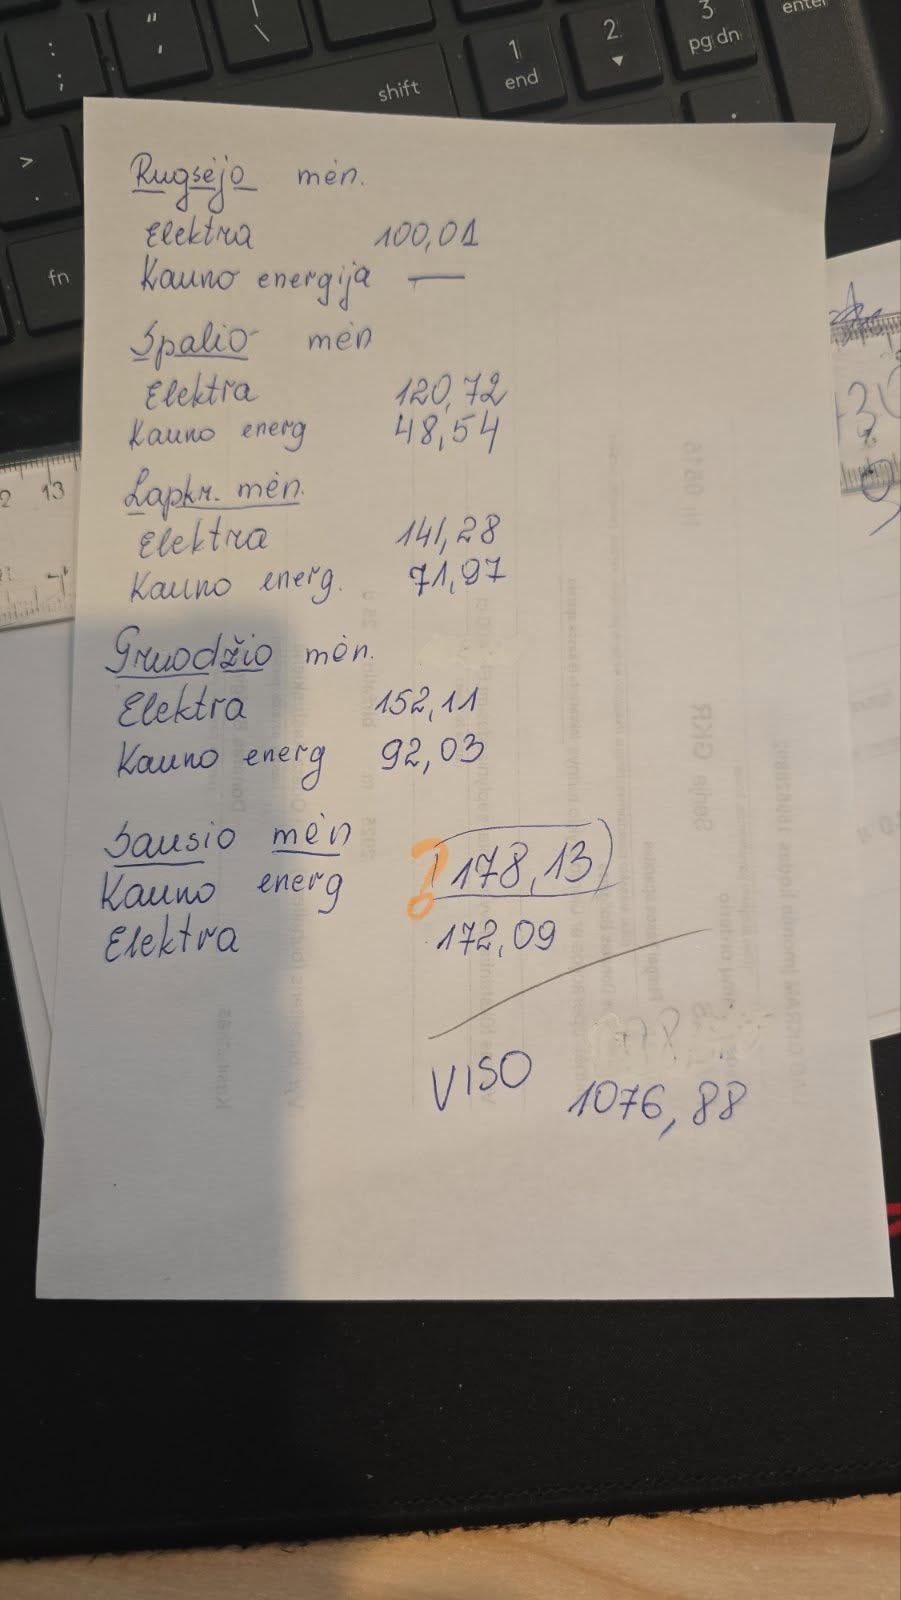 " 
: ' | 
; , \ 
shift
1
end
2
3
pg dn
enter
>
.
fn
Rugsėjo mėn.
Elektra 100,01
Kauno energija —
Spalio mėn
Elektra 120,72
Kauno energ 48,54
Lapkr. mėn.
Elektra 141,28
Kauno energ. 71,97
Gruodžio mėn.
Elektra 152,11
Kauno energ 92,03
Sausio mėn
Kauno energ ? (178,13)
Elektra 172,09
VISO 1076,88
2 13